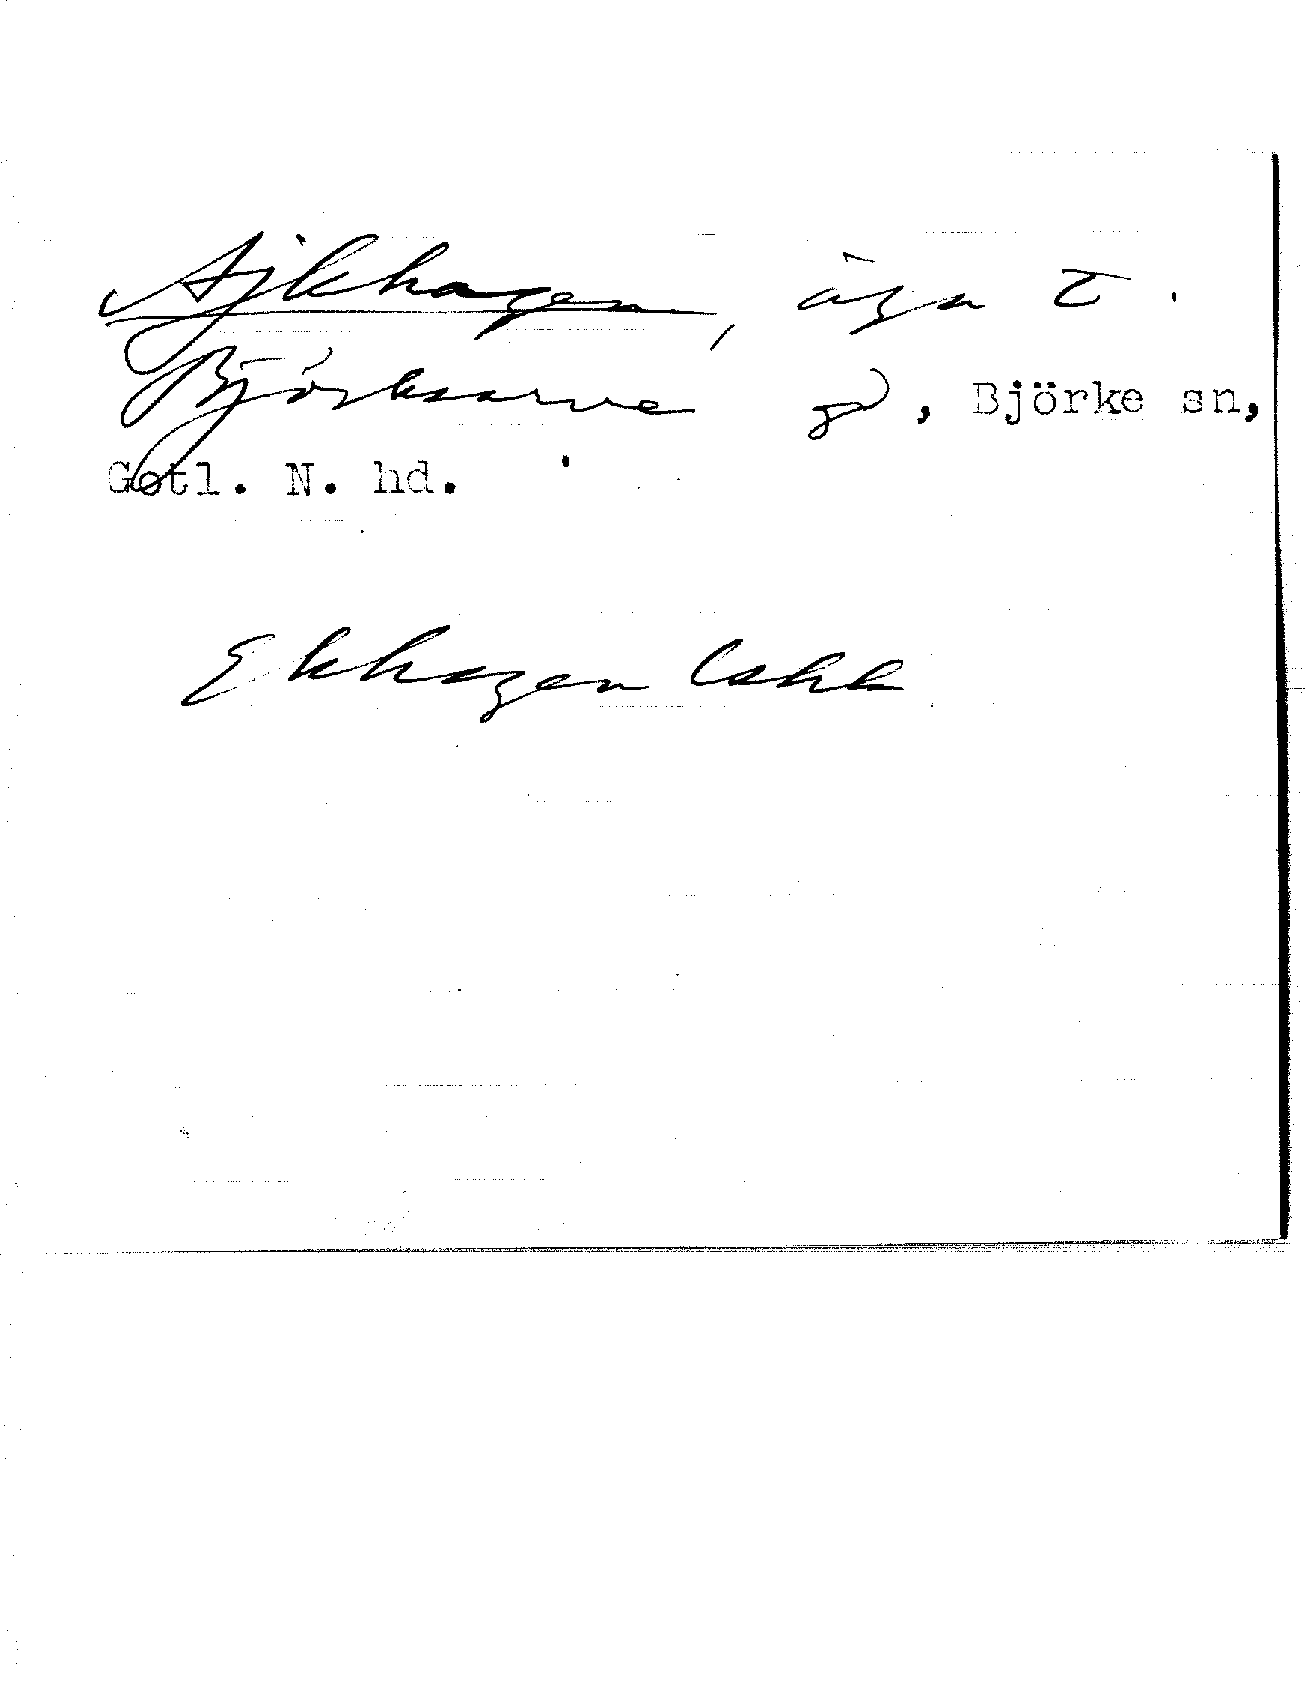 Ajkhagen, äga t.
Björksarve gd, Björke sn,
Gotl. N. hd.
Ekhagen